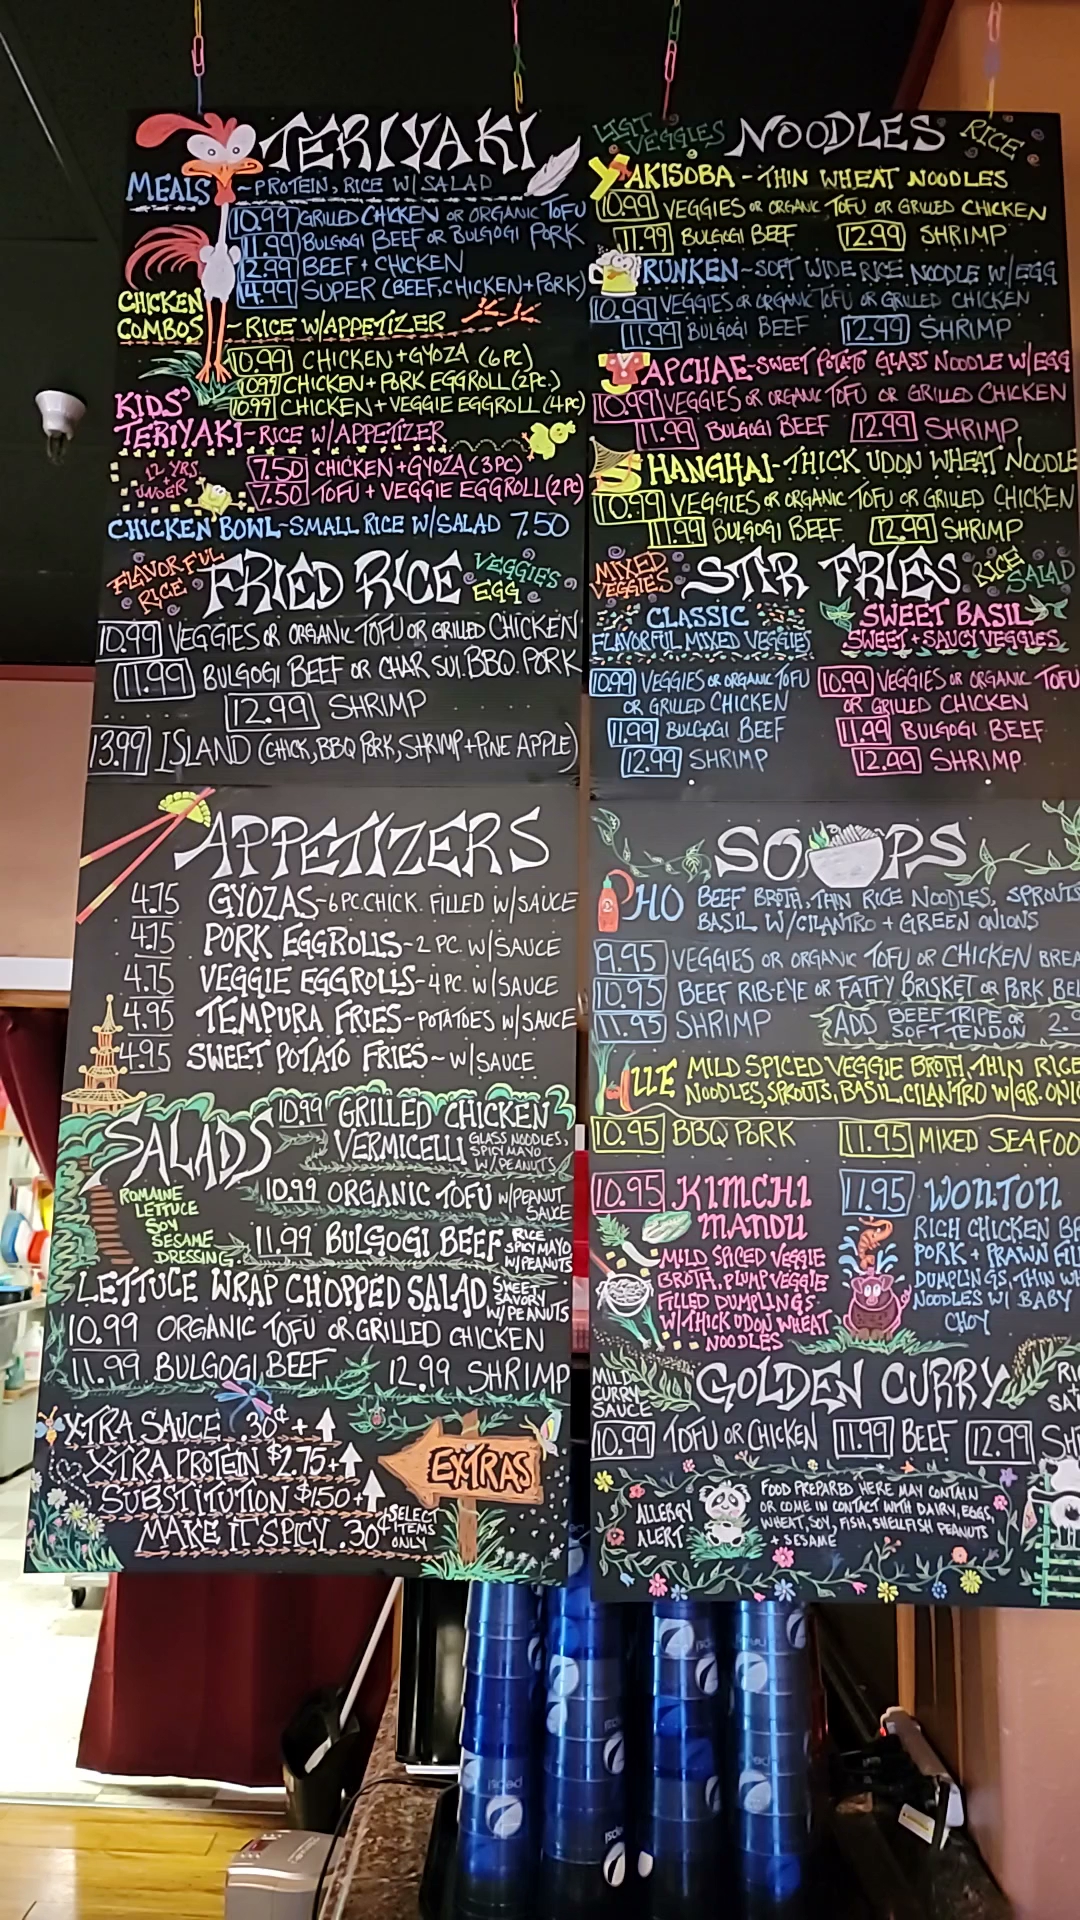 TERIYAKI
MEALS ~PROTEIN, RICE W/ SALAD
10.99 GRILLED CHICKEN OR ORGANIC TOFU
11.99 BULGOGI BEEF OR BULGOGI PORK
12.99 BEEF + CHICKEN
14.99 SUPER (BEEF, CHICKEN + PORK)
CHICKEN
COMBOS ~RICE W/APPETIZER
10.99 CHICKEN + GYOZA (6 PC)
10.99 CHICKEN + PORK EGGROLL (2 PC.)
10.99 CHICKEN + VEGGIE EGGROLL (4 PC)
KIDS'
TERIYAKI~RICE W/APPETIZER
12 YRS
+
UNDER
7.50 CHICKEN + GYOZA (3 PC)
7.50 TOFU + VEGGIE EGGROLL (2 PC)
CHICKEN BOWL~SMALL RICE W/SALAD 7.50
FLAVORFUL
RICE
FRIED RICE
VEGGIES
EGG
10.99 VEGGIES OR ORGANIC TOFU OR GRILLED CHICKEN
11.99 BULGOGI BEEF OR CHAR SUI BBQ PORK
12.99 SHRIMP
13.99 ISLAND (CHICK, BBQ PORK, SHRIMP + PINE APPLE)
APPETIZERS
4.75 GYOZAS~6 PC. CHICK. FILLED W/SAUCE
4.75 PORK EGGROLLS~2 PC. W/SAUCE
4.75 VEGGIE EGGROLLS~4 PC. W/SAUCE
4.95 TEMPURA FRIES~POTATOES W/SAUCE
4.95 SWEET POTATO FRIES~W/SAUCE
SALADS
ROMAINE
LETTUCE
SOY
SESAME
DRESSING
10.99 GRILLED CHICKEN
VERMICELLI GLASS NOODLES,
SPICY MAYO
W/PEANUTS
10.99 ORGANIC TOFU W/PEANUT
SAUCE
11.99 BULGOGI BEEF RICE
SPICY MAYO
W/PEANUTS
LETTUCE WRAP CHOPPED SALAD SWEET
SAVORY
W/PEANUTS
10.99 ORGANIC TOFU OR GRILLED CHICKEN
11.99 BULGOGI BEEF 12.99 SHRIMP
XTRA SAUCE .30¢ +
XTRA PROTEIN $2.75+
SUBSTITUTION $1.50+
MAKE IT SPICY .30¢ SELECT
ITEMS
ONLY
EXTRAS
LIGHT
VEGGIES
NOODLES
RICE
YAKISOBA - THIN WHEAT NOODLES
10.99 VEGGIES OR ORGANIC TOFU OR GRILLED CHICKEN
11.99 BULGOGI BEEF 12.99 SHRIMP
DRUNKEN~SOFT WIDE RICE NOODLE W/EGG
10.99 VEGGIES OR ORGANIC TOFU OR GRILLED CHICKEN
11.99 BULGOGI BEEF 12.99 SHRIMP
JAPCHAE~SWEET POTATO GLASS NOODLE W/EGG
10.99 VEGGIES OR ORGANIC TOFU OR GRILLED CHICKEN
11.99 BULGOGI BEEF 12.99 SHRIMP
SHANGHAI-THICK UDON WHEAT NOODLE
10.99 VEGGIES OR ORGANIC TOFU OR GRILLED CHICKEN
11.99 BULGOGI BEEF 12.99 SHRIMP
MIXED
VEGGIES
STIR FRIES
RICE
SALAD
CLASSIC
FLAVORFUL MIXED VEGGIES
10.99 VEGGIES OR ORGANIC TOFU
OR GRILLED CHICKEN
11.99 BULGOGI BEEF
12.99 SHRIMP
SWEET BASIL
SWEET + SAUCY VEGGIES
10.99 VEGGIES OR ORGANIC TOFU
OR GRILLED CHICKEN
11.99 BULGOGI BEEF
12.99 SHRIMP
SOUPS
PHO BEEF BROTH, THIN RICE NOODLES, SPROUTS
BASIL W/CILANTRO + GREEN ONIONS
9.95 VEGGIES OR ORGANIC TOFU OR CHICKEN BREA
10.95 BEEF RIB-EYE OR FATTY BRISKET OR PORK BEL
11.95 SHRIMP ADD BEEF TRIPE OR
SOFT TENDON 2.9
HUE MILD SPICED VEGGIE BROTH, THIN RICE
NOODLES, SPROUTS, BASIL, CILANTRO W/GR. ONIO
10.95 BBQ PORK 11.95 MIXED SEAFOO
10.95 KIMCHI
MANDU
MILD SPICED VEGGIE
BROTH, PLUMP VEGGIE
FILLED DUMPLINGS
W/THICK UDON WHEAT
NOODLES
11.95 WONTON
RICH CHICKEN BR
PORK + PRAWN FILL
DUMPLINGS, THIN WH
NOODLES W/ BABY
CHOY
MILD
CURRY
SAUCE
GOLDEN CURRY
RI
SA
10.99 TOFU OR CHICKEN 11.99 BEEF 12.99 SH
ALLERGY
ALERT
FOOD PREPARED HERE MAY CONTAIN
OR COME IN CONTACT WITH DAIRY, EGGS,
WHEAT, SOY, FISH, SHELLFISH PEANUTS
+ SESAME